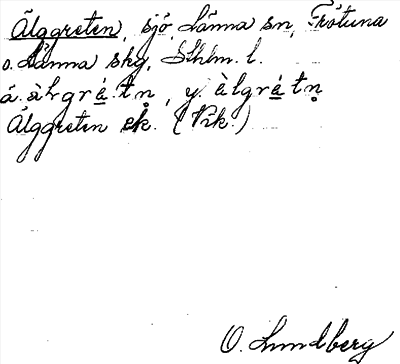 Älggreten, sjö, Länna sn, Frötuna
o. Länna skg, Sthlm. l.
ä. àlgré.tn, y. èlgrétn
Älggreten ek. (Vik.)
O. Lundberg